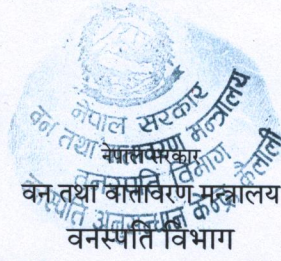 नेपाल सरकार
वन तथा वातावरण मन्त्रालय
वनस्पति विभाग
वनस्पति अनुसन्धान केन्द्र कैलाली
नेपाल सरकार
वन तथा वातावरण मन्त्रालय
वनस्पति विभाग